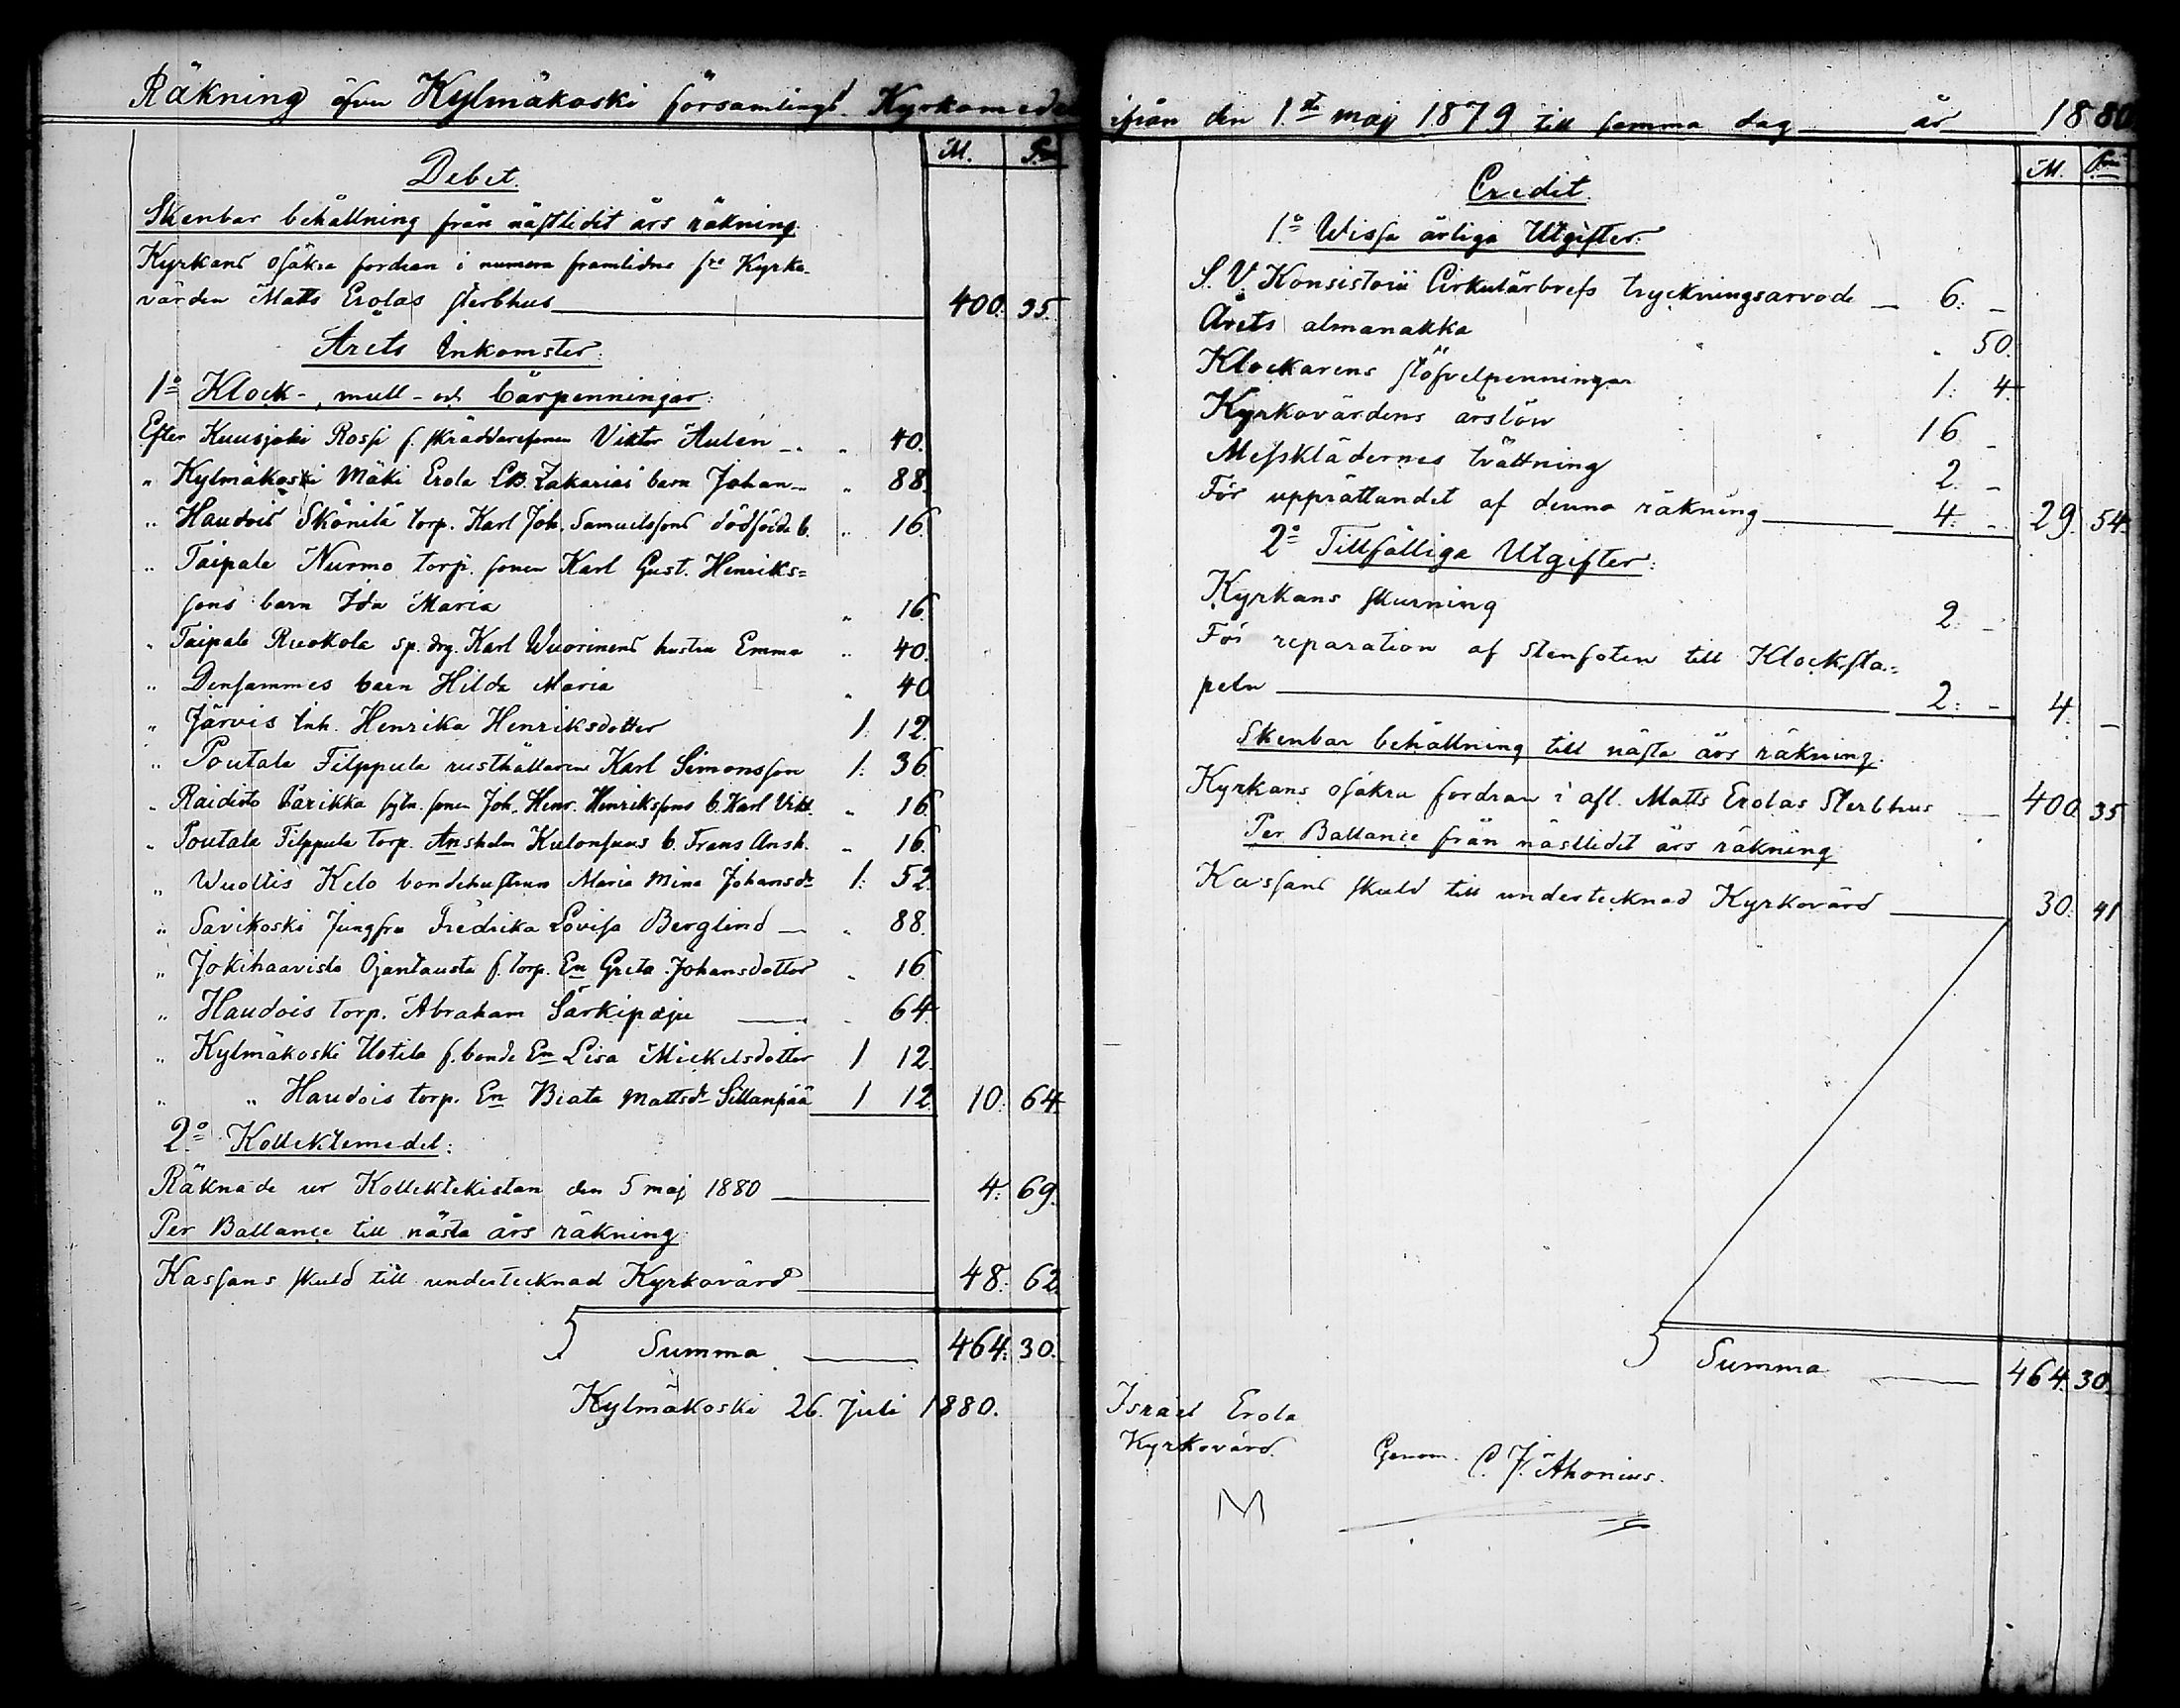 Räkning öfver Kylmäkoski församlings Kyrkomedel
M. P:r
Debet.
Skenbar behållning från nästledit års räkning.
Kyrkans osäkra fordran i numera framlidne f:re Kyrko-
värden Matts Erolas sterbhus 400. 35.
Årets Inkomster:
1:o Klock-, mull- och bärpenningar:
Efter Kuusjoki Rossi f. skräddaresonen Viktor Aulén „ 40.
„ Kylmäkoski Mäki Erola LB. Zakarias barn Johan „ 88.
„ Haudois Skönilä torp. Karl Joh. Samuelssons dödfödda b. „ 16.
„ Taipale Nurmo torp. sonen Karl Gust. Henriks=
sons barn Ida Maria „ 16.
„ Taipale Ruokola sp. drg. Karl Wuorinens hustru Emma „ 40.
„ Densammes barn Hilda Maria „ 40
„ Järvis Inh. Henrika Henriksdotter 1: 12.
„ Poutala Filppula rusthållaren Karl Simonsson 1: 36.
„ Raidisto Parikka sytn. sonen Joh. Henr. Henrikssons b. Karl Vikt. „ 16.
„ Poutala Filppula torp. Anshelm Kulonsuus b. Frans Ansh. „ 16.
„ Wuoltis Kelo bondehustrun Maria Mina Johansd:r 1: 52.
„ Savikoski Jungfru Fredrika Lovisa Berglind „ 88.
„ Jokihaavisto Ojantausta f. torp. En Greta Johansdotter „ 16
„ Haudois torp. Abraham Särkipaju „ 64.
„ Kylmäkoski Uotila f. bonde En Lisa Mickelsdotter 1 12.
„ „ Haudois torp. En Biata Mattsd:r Sillanpää 1 12. 10: 64.
2:o Kollektemedel:
Räknade ur Kollektekistan den 5 maj 1880 4: 69.
Per Ballance till nästa års räkning
Kassans skuld till undertecknad Kyrkovärd 48: 62.
Summa 464: 30.
Kylmäkoski 26. juli 1880.
ifrån den 1:sta maj 1879 till samma dag år 1880
M. P:ni
Credit.
1:o Wissa årliga Utgifter:
S. V. Konsistorii Cirkulärbrefs tryckningsarvode 6: –
Årets almanakka „ 50.
Klockarens stöfvelpenningar 1: 4
Kyrkovärdens årslön 16 –
Messklädernes tvättning 2. –
För upprättandet af denna räkning 4: – 29. 54.
2:o Tillfälliga Utgifter:
Kyrkans skurning 2: –
För reparation af stenfoten till Klocksta=
peln 2: – 4: –
Skenbar behållning till nästa års räkning.
Kyrkans osäkra fordran i afl. Matts Erolas Sterbhus 400. 35
Per Ballance från nästledit års räkning
Kassans skuld till undertecknad Kyrkovärd 30: 41
Summa 464. 30.
Israel Erola
Kyrkovärd.
Genom. C. J. Ahonius.